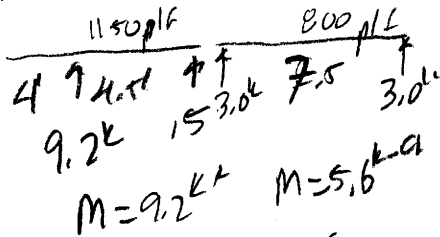 1150plf 800 plf
4' 4.5' 7.5
9.2k .5 3.0k 3.0k
M=9.2k-ft M=5.6k-ft